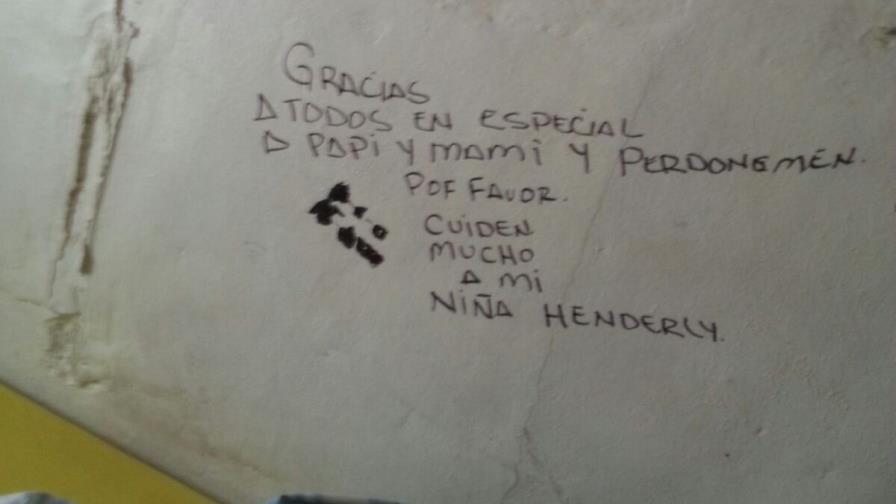 GRACIAS
A TODOS EN ESPECIAL
A PAPI Y MAMI Y PERDONEMEN.
POF FAVOR.
CUIDEN
MUCHO
A MI
NIÑA HENDERLY.